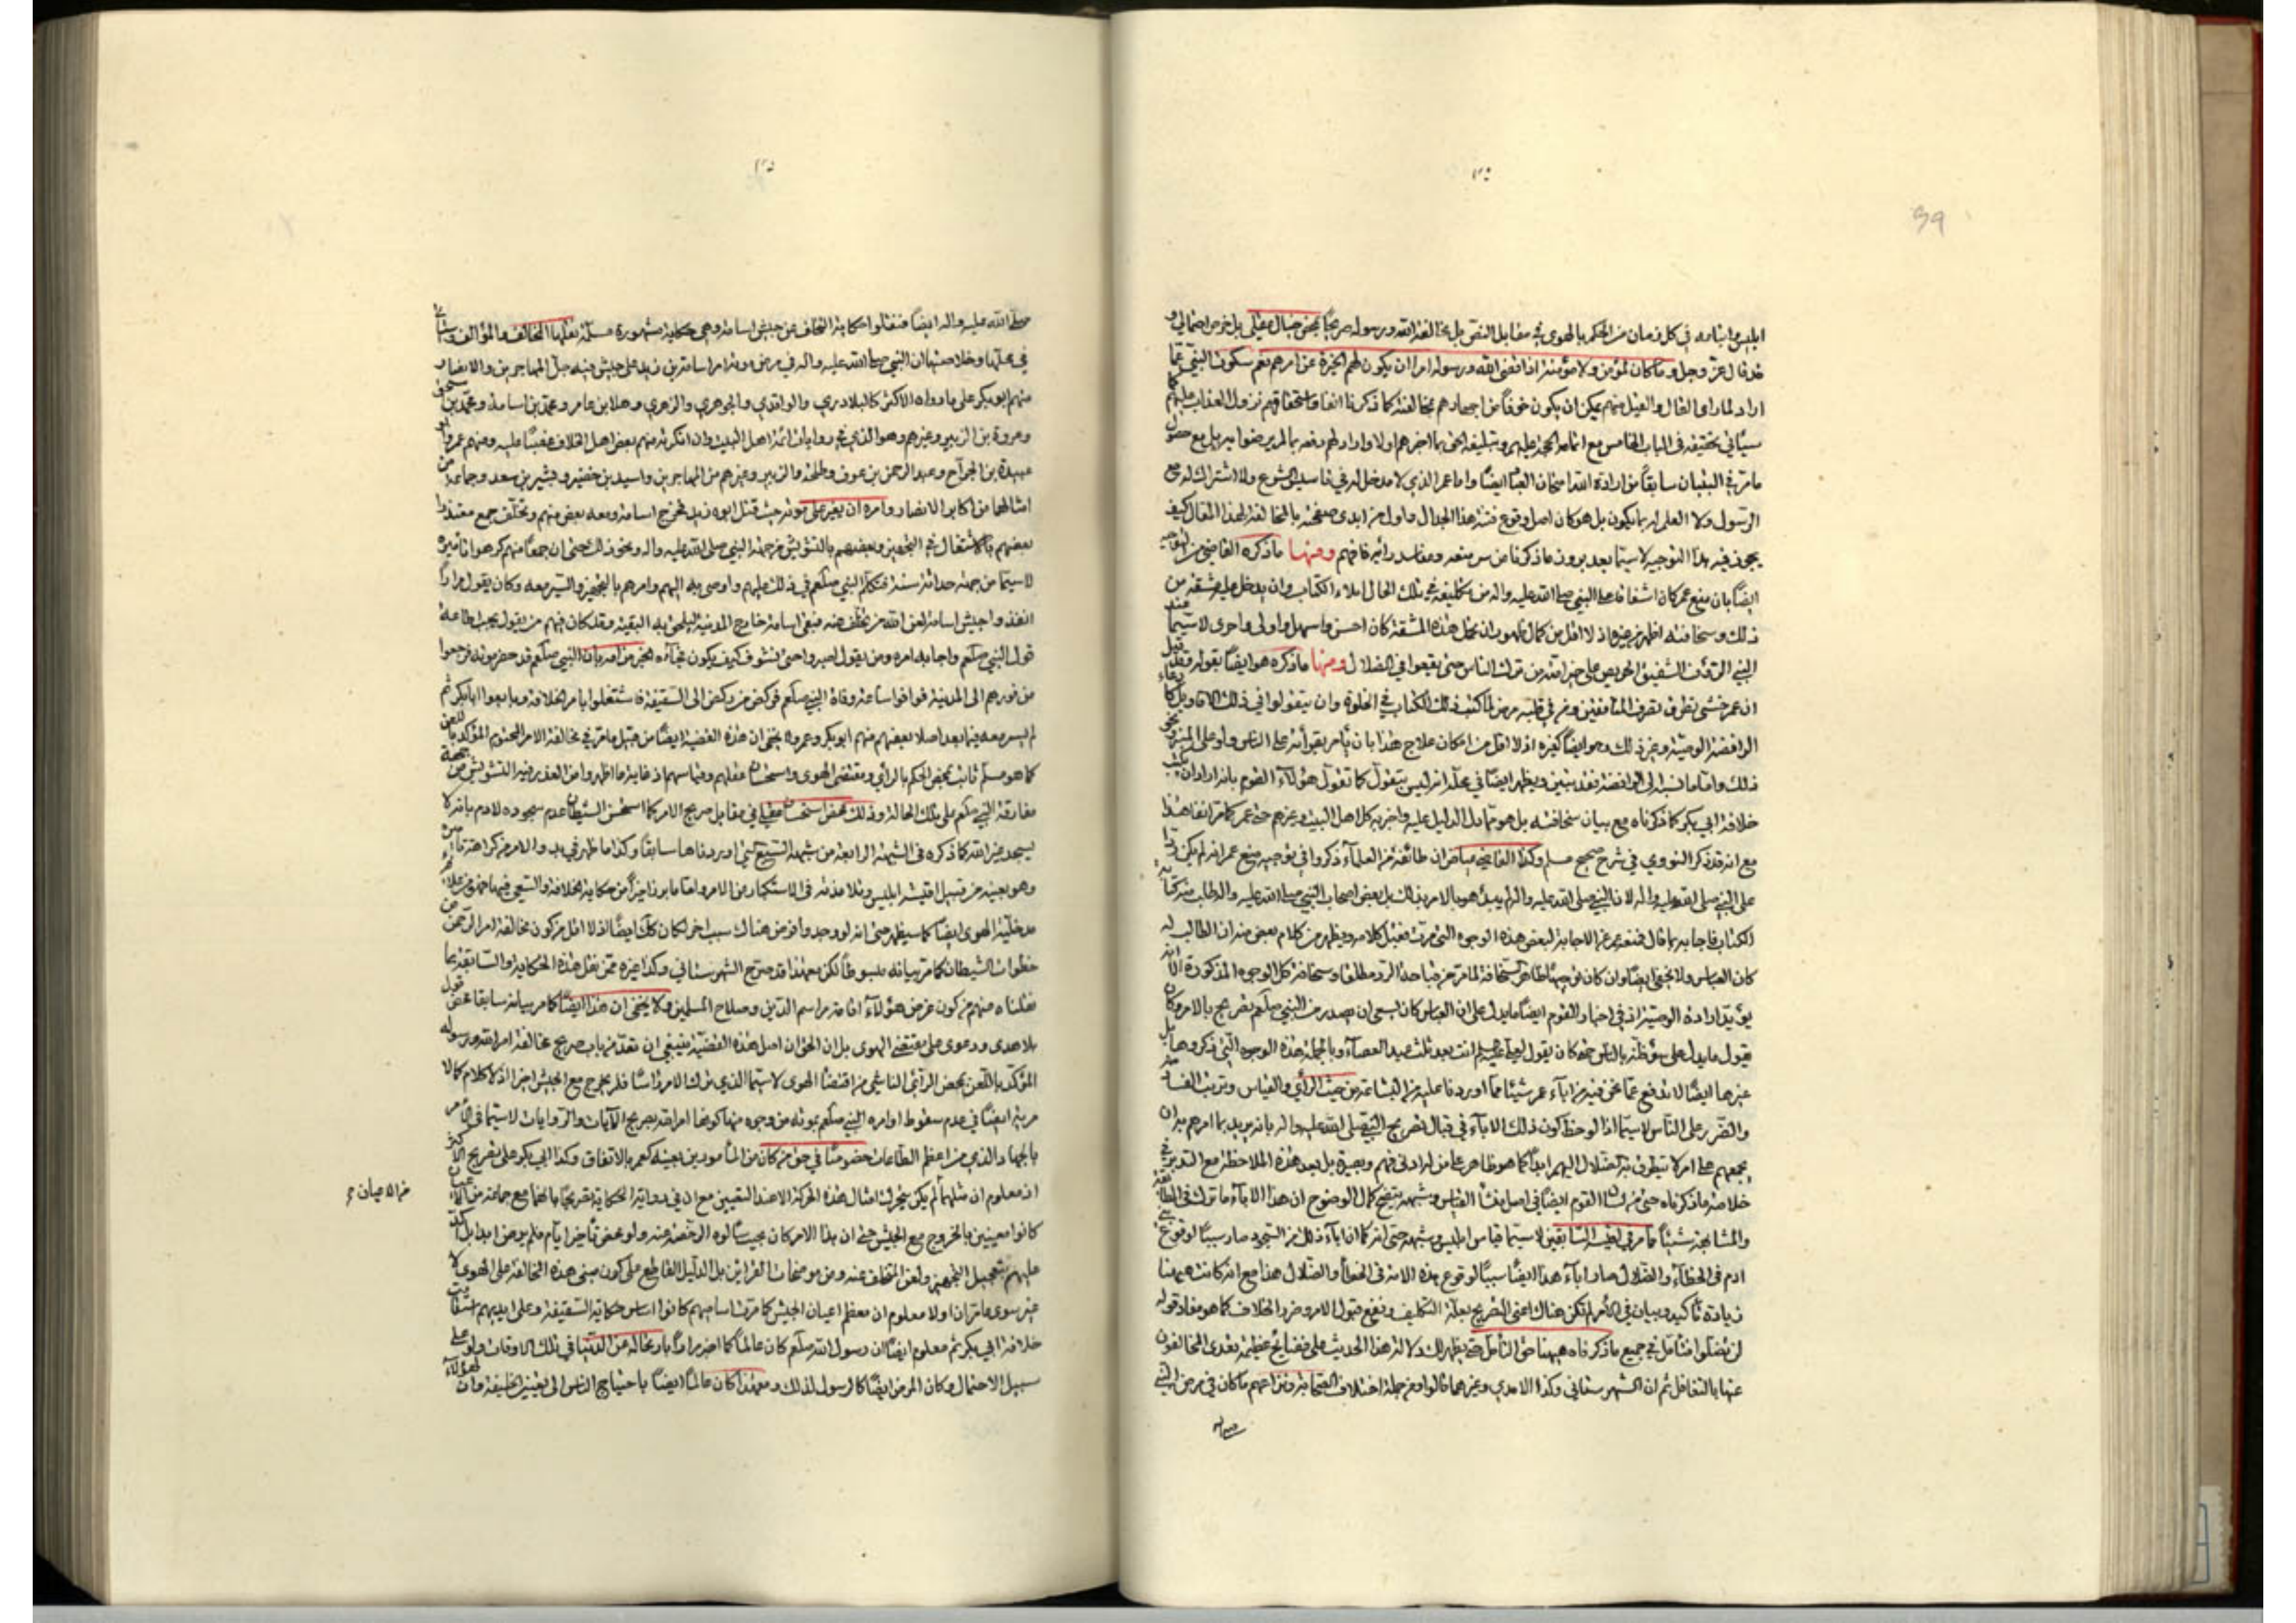 ابليس واتباعه في كل زمان من الحكم بالهوى في مقابل النص بل مخالفة الله ورسوله صريحاً بمحض خيال عقلي بل غرض احتمالي و
قد قال عز وجل وما كان لمؤمن ولا مؤمنة اذا قضى الله ورسوله امرا ان يكون لهم الخيرة من امرهم نعم سكوت النبي عما
اراد لما راى القال والقيل منهم يمكن ان يكون خوفاً من اجهارهم بمخالفته كما ذكرنا انفا واستحقاقهم نزول العذاب عليهم كما
سيأتي تحقيقه في الباب الخامس مع اتمامه الحجة عليهم وتبليغه الحق بما اخبرهم اولا واراد لهم دفعه بما لم يرضوا به بل مع حصول
ما مر في البنيان سابقاً من ارادة الله امتحان العباد ايضاً واما عمر الذي لا مدخل له في تأسيس الشرع ولا اشتراك له مع
الرسول ولا العلم له بما يكون بل هو كان اصل وقوع فتنة هذا الجدال واول من ابدى صفحته بالمخالفة لهذا المقال كيف
يجري فيه هذا التوجيه لاسيما بعد بروز ما ذكرنا من سر منعه ومفاسد رأيه فافهم ومنها ما ذكره القاضي من التوجيه
ايضاً بان منع عمر كان اشفاقا على النبي صلى الله عليه واله من تكليفه في تلك الحال املاء الكتاب وان يدخل عليه مشقة من
ذلك وسخافته اظهر من غيره اذ لا اقل من كمال ظهور ان تحمل هذه المشقة كان احسن واسهل واولى واحرى لاسيما عند
النبي الرؤف الشفيق الحريص على خير امته من ترك الناس حتى يقعوا في الضلال ومنها ما ذكره هو ايضاً بقوله وقيل
ان عمر خشى تطرق المنافقين ومن في قلبه مرض لما كتب ذلك الكتاب في الخلوة وان يتقولوا في ذلك الاقاويل كادعاء
الرافضة الوصية وغير ذلك وهو ايضاً كغيره اذ لا اقل من امكان علاج هذا بان يأمر بقرأته على الناس ولو على المنبر ونحو
ذلك واما ما نسبه الى الرافضة فقد تبين ويظهر ايضاً في محله انه ليس بتقول كما تقول هؤلاء القوم بانه اراد ان يكتب
خلافة ابي بكر كما ذكرناه مع بيان سخافته بل هو مما دل الدليل عليه واخبر به كل اهل البيت وغيرهم حتى عمر كما مر انفا هذا
مع انه قد ذكر النووي في شرح صحيح مسلم وكذا القاضي عياض ان طائفة من العلماء ذكروا في توجيه منع عمر انه لم يكن ردا
على النبي صلى الله عليه واله لان النبي صلى الله عليه واله لم يبدأ هو بالامر بذلك بل بعض اصحاب النبي صلى الله عليه واله طلب منه كتابة
الكتاب فاجابه بما قال فمنع عمر عن الاجابة لبعض هذه الوجوه التي مرت نقل كلامه ويظهر من كلام بعض منه ان الطالب له
كان العباس ولا يخفى ايضا وان كان توجيها ظاهر السخافة لما مر من صراحة الرد مطلقا وسخافة كل الوجوه المذكورة الا انه
يؤيد ارادة الوصية اذ في اخبار القوم ايضاً ما يدل على ان العباس كان يسعى ان يصدر من النبي صلعم تصريح بالامر وكان
يقول ما يدل على سوء ظنه بالناس حتى كان يقول لعلي عليه السلام انت بعد ثلث عبد العصا وبالجملة هذه الوجوه التي ذكروها بل
غيرها ايضاً لا تدفع عما نحن فيه من اباء عمر شيئا مما اوردنا عليه من البشاعة من حيث الرأي والقياس وترتب الفساد
والضرر على الناس لاسيما اذا لوحظ كون ذلك الاباء في قبال تصريح النبي صلى الله عليه واله بانه يريد بما امرهم به ان
يجمعهم على امر لا يتطرق به الضلال اليهم ابداً كما هو ظاهر على من له ادنى فهم وبصيرة بل بعد هذه الملاحظة مع التدبر في
خلاصة ما ذكرناه حتى من القوم ايضاً في اصل منشأ القياس وشبهته يتضح كمال الوضوح ان هذا الاباء ما ترك في المطابقة
والمشابهة شيئاً مما مر في اقيسة السابقين لاسيما قياس ابليس وشبهته حتى انه كما ان اباءه ذلك من السجود صار سببا لوقوع بني
ادم في الخطاء والضلال صار اباء هذا ايضاً سببا لوقوع هذه الامة في الخطأ والضلال هذا مع انه كانت هيهنا
زيادة تأكيد وبيان في الامر لم تكن هناك اعني التصريح بعلة التكليف ونفع قبول الامر وضرر الخلاف كما هو مفاد قوله
لن تضلوا فتأمل في جميع ما ذكرناه هيهنا حق التأمل حتى يظهر لك دلالة هذا الحديث على فضايح عظيمة تعدى المخالفون
عنها بالتغافل ثم ان الشهرستاني وكذا الامدي وغيرهما قالوا ومن جملة اختلاف الصحابة ونزاعهم ما كان في مرض النبي
صلى الله عليه واله ايضاً فنقلوا حكاية التخلف عن جيش اسامة وهي حكاية مشهورة مسلمة نقلها المخالف والمؤالف وستأتي
في محلها وخلاصتها ان النبي صلى الله عليه واله في مرض موته امر اسامة بن زيد على جيش فيه جل المهاجرين والانصار و
منهم ابو بكر على ما رواه الاكثر كالبلاذري والواقدي والجوهري والزهري وهلال بن عامر ومحمد بن اسامة ومحمد بن اسحق
وعروة بن الزبير وغيرهم وهو الذي في روايات ائمة اهل البيت وان انكر منهم بعض اهل الخلاف تعصبا عليه ومنهم عمر وابو
عبيدة بن الجراح وعبد الرحمن بن عوف وطلحة والزبير وغيرهم من المهاجرين واسيد بن حضير وبشير بن سعد وجماعة من
امثالهما من اكابر الانصار وامره ان يغير على موتة حيث قتل ابوه زيد فخرج اسامة ومعه بعض منهم وتخلف جمع معتذرا
بعضهم بالاشتغال في التجهيز وبعضهم بالتشويش من جهة النبي صلى الله عليه واله ونحو ذلك حتى ان جمعاً منهم كرهوا تأميره
لاسيما من جهة حداثة سنه فتكلم النبي صلعم في ذلك عليهم واوصى به اليهم وامرهم بالتجهيز والسير معه وكان يقول مرارا
انفذوا جيش اسامة لعن الله من تخلف عنه فبقي اسامة خارج المدينة ليلحق به البقية وقد كان فيهم من يقول يجب طاعة
قول النبي صلعم واجابة امره ومن يقول اصبروا حتى نشوف كيف يكون فجاءه الخبر من امه بان النبي صلعم قد حضر موته فرجعوا
من فورهم الى المدينة فوافوا ساعة وفاة النبي صلعم فركض من ركض الى السقيفة فاشتغلوا بامر الخلافة وبايعوا ابا بكر ثم
لم يسر معه فيما بعد اصلا بعضهم منهم ابو بكر وعمر ولا يخفى ان هذه القضية ايضاً من قبيل ما مر في مخالفة الامر المحتوم المؤكد باللعن
كما هو مسلم ثابت بمحض الحكم بالرأي ومقتضى الهوى واستحسان عقلهم وقياسهم اذ غاية ما اظهروا من العذر فيه التشويش من جهة
مفارقة النبي صلعم على تلك الحالة وذلك محض استحسان عقلي في مقابل صريح الامر كما استحسن الشيطان عدم سجوده لادم بانه لا
يسجد لغير الله كما ذكره في الشبهة الرابعة من شبهه السبع التي اوردناها سابقاً وكذا ما ظهر في بدو الامر من كراهة تأمير
وهو بعينه من قبيل اقيسة ابليس وتلامذته في الاستكبار من الامر واما ما برز اخيراً من حكاية الخلافة والسعي فيها فهو من علائم
مدخلية الهوى ايضاً كما سيظهر حتى انه لو وجد وافرض هناك سبب اخر لكان كذلك ايضاً اذ لا اقل من كون مخالفة امر الرحمن من
خطوات الشيطان كما مر بيانه مبسوطاً لكن مع هذا قد صرح الشهرستاني وكذا غيره ممن نقل هذه الحكاية والسابقة بما
نقلناه منهم من كون غرض هؤلاء اقامة مراسم الدين وصلاح المسلمين ولا يخفى ان هذا ايضاً كما مر بيانه سابقا محض قول
بلا هدى ودعوى على مقتضى الهوى بل ان الحق ان اصل هذه القضية ينبغي ان تعد من باب صريح مخالفة امر الله ورسوله
المؤكد باللعن بمحض الرأي الناشي من اقتضاء الهوى لاسيما الذي ترك الامر راسا فلم يخرج مع الجيش اخرا اذ لا كلام كما لا
مرية ايضاً في عدم سقوط اوامر النبي صلعم بموته من وجوه منها كونها امر الله بصريح الآيات والروايات لاسيما في الامر
بالجهاد الذي من اعظم الطاعات خصوصاً في حق من كان من المأمورين بعينه كعمر بالاتفاق وكذا ابي بكر على تصريح الاكثر
اذ معلوم ان مثلهما لم يكن يتحرك امثال هذه الحركة الا عند التعيين مع ان في رواية الحكاية تصريحا بانهما مع جماعة من الاعيان
من الاعيان
كانوا معينين بالخروج مع الجيش حتى ان هذا الامر كان بحيث سألوه الرخصة عنه ولو بمحض تأخير ايام فلم يرض ابدا بل اكد
عليهم بتعجيل التجهيز ولعن المتخلف عنه ومن موضحات القرائن بل الدليل القاطع على كون مبنى هذه المخالفة على الهوى لا
غير سوى ما مر ان اولا معلوم ان معظم اعيان الجيش كما مرت اساميهم كانوا اساس حكاية السقيفة وعلى ايديهم استقامت
خلافة ابي بكر ثم معلوم ايضاً ان رسول الله صلعم كان عالماً كما اخبر مراراً بارتحاله من الدنيا في تلك الاوقات ولو على
سبيل الاحتمال وكان المرض ايضاً كالرسول لذلك ومع هذا كان عالماً ايضاً باحتياج الناس الى تعيين الخليفة وان هؤلاء